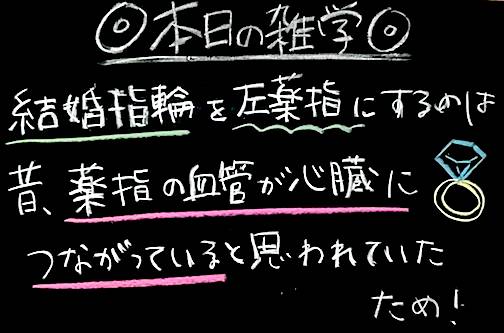 ◎本日の雑学◎
結婚指輪を左薬指にするのは
昔、薬指の血管が心臓に
つながっていると思われていた
ため!